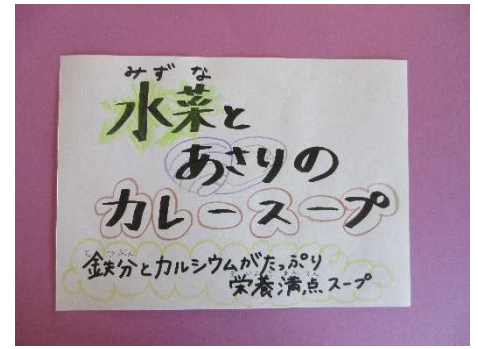 みずな
水菜と
あさりの
カレースープ
てつぶん
鉄分とカルシウムがたっぷり
栄養満点スープ